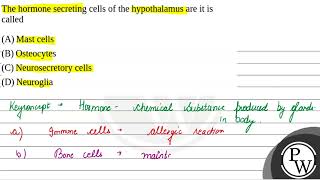 The hormone secreting cells of the hypothalamus are it is
called
(A) Mast cells
(B) Osteocytes
(C) Neurosecretory cells
(D) Neuroglia
Keyconcept → Hormone - chemical substance produced by glands
in body.
a) Immune cells → allergic reaction
b) Bone cells → maintai
PW